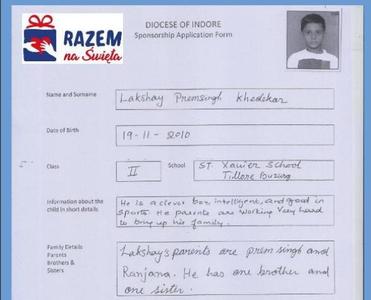 RAZEM
na Święta
DIOCESE OF INDORE
Sponsorship Application Form
Name and Surname
Lakshay Premsingh Khedekar
Date of Birth
19-11-2010
Class
II
School
ST. Xavier School
Tillore Buzurg
Information about the
child in short details
He is a clever boy, intelligent, and good in
sports. He parents are working very hard
to bring up his family.
Family Details
Parents
Brothers &
Sisters
Lakshay's parents are prem singh and
Ranjana. He has one brother and
one sister.